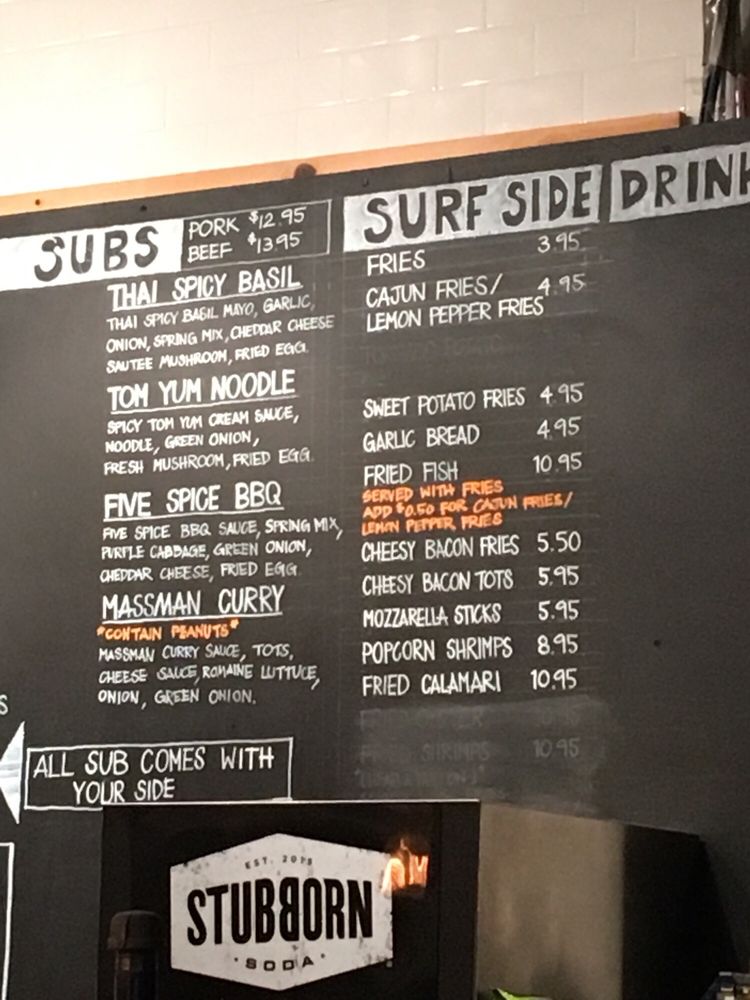 SUBS
PORK $12.95
BEEF $13.95
THAI SPICY BASIL
THAI SPICY BASIL MAYO, GARLIC,
ONION, SPRING MIX, CHEDDAR CHEESE
SAUTEE MUSHROOM, FRIED EGG.
TOM YUM NOODLE
SPICY TOM YUM CREAM SAUCE,
NOODLE, GREEN ONION,
FRESH MUSHROOM, FRIED EGG.
FIVE SPICE BBQ
FIVE SPICE BBQ SAUCE, SPRING MIX,
PURPLE CABBAGE, GREEN ONION,
CHEDDAR CHEESE, FRIED EGG.
MASSMAN CURRY
*CONTAIN PEANUTS*
MASSMAN CURRY SAUCE, TOTS,
CHEESE SAUCE, ROMAINE LUTTUCE,
ONION, GREEN ONION.
ALL SUB COMES WITH
YOUR SIDE
SURF SIDE
FRIES 3.95
CAJUN FRIES/ 4.95
LEMON PEPPER FRIES
SWEET POTATO FRIES 4.95
GARLIC BREAD 4.95
FRIED FISH 10.95
SERVED WITH FRIES
ADD $0.50 FOR CAJUN FRIES/
LEMON PEPPER FRIES
CHEESY BACON FRIES 5.50
CHEESY BACON TOTS 5.95
MOZZARELLA STICKS 5.95
POPCORN SHRIMPS 8.95
FRIED CALAMARI 10.95
FRIED SHRIMPS 10.95
DRIN
S
EST. 2015
STUBBORN
SODA